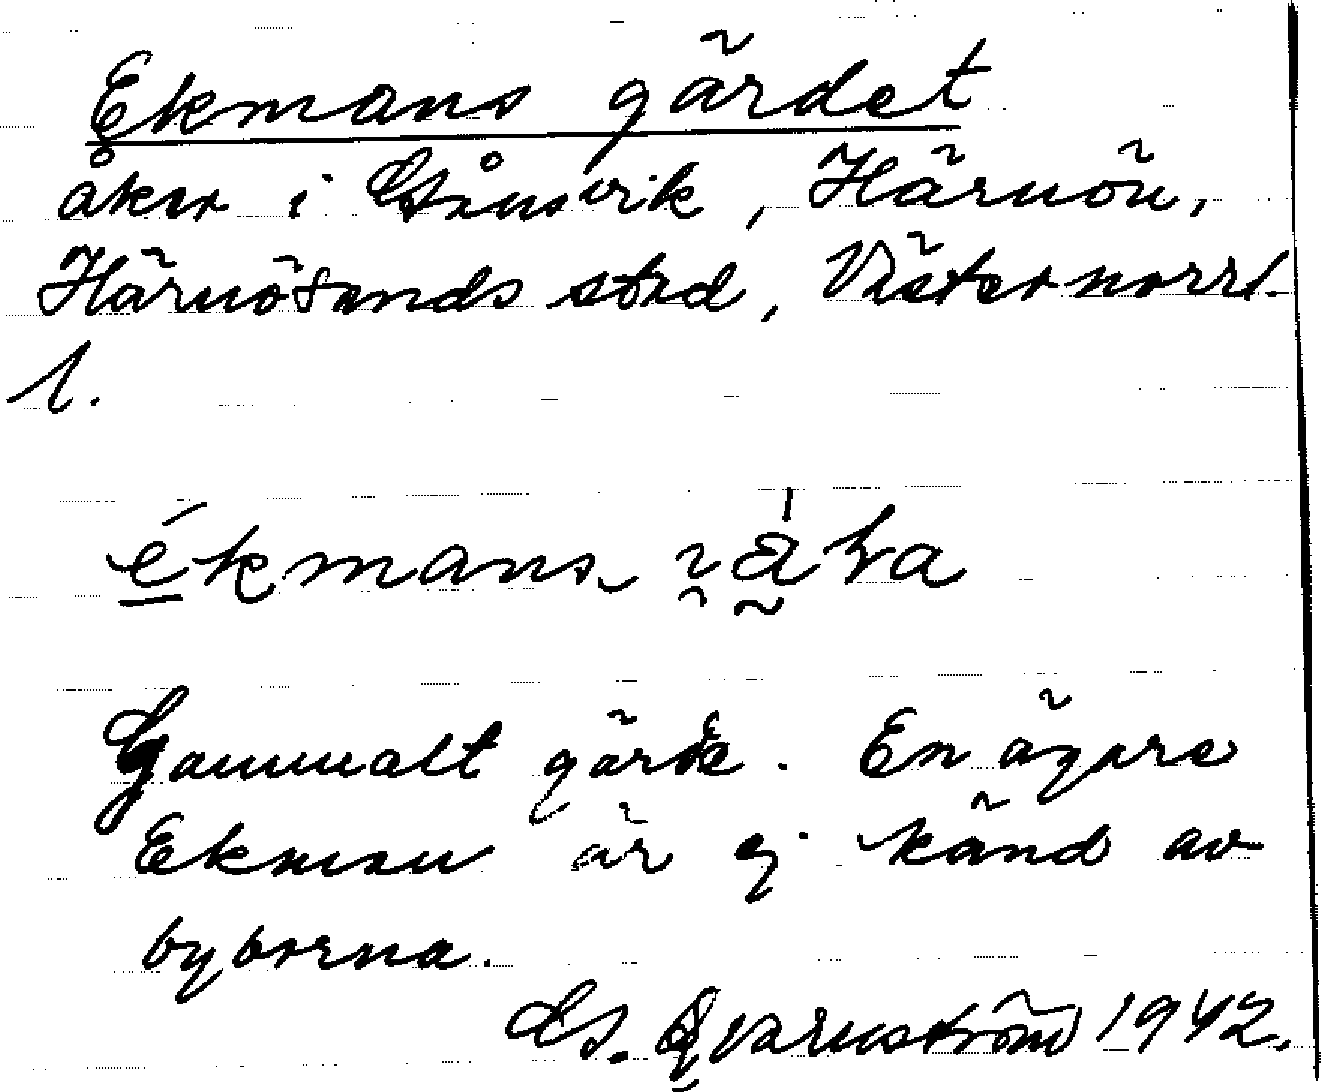 Ekmans gärdet
åker i Gånsvik, Härnön,
Härnösands stad, Västernorrl.
l.
Gammalt gärde. En ägare
Ekman är ej känd av
byborna.
G. Qvarnström 1942.